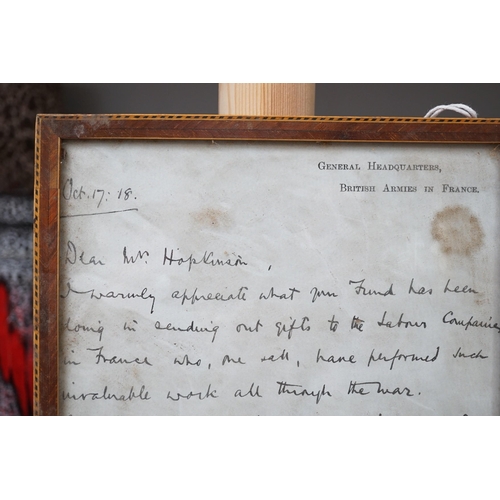 GENERAL HEADQUARTERS,
BRITISH ARMIES IN FRANCE.
Oct. 17: 18.
Dear Mr. Hopkinson,
I warmly appreciate what your Fund has been
doing in sending out gifts to the Labour Companies
in France who, one & all, have performed such
invaluable work all through the war.